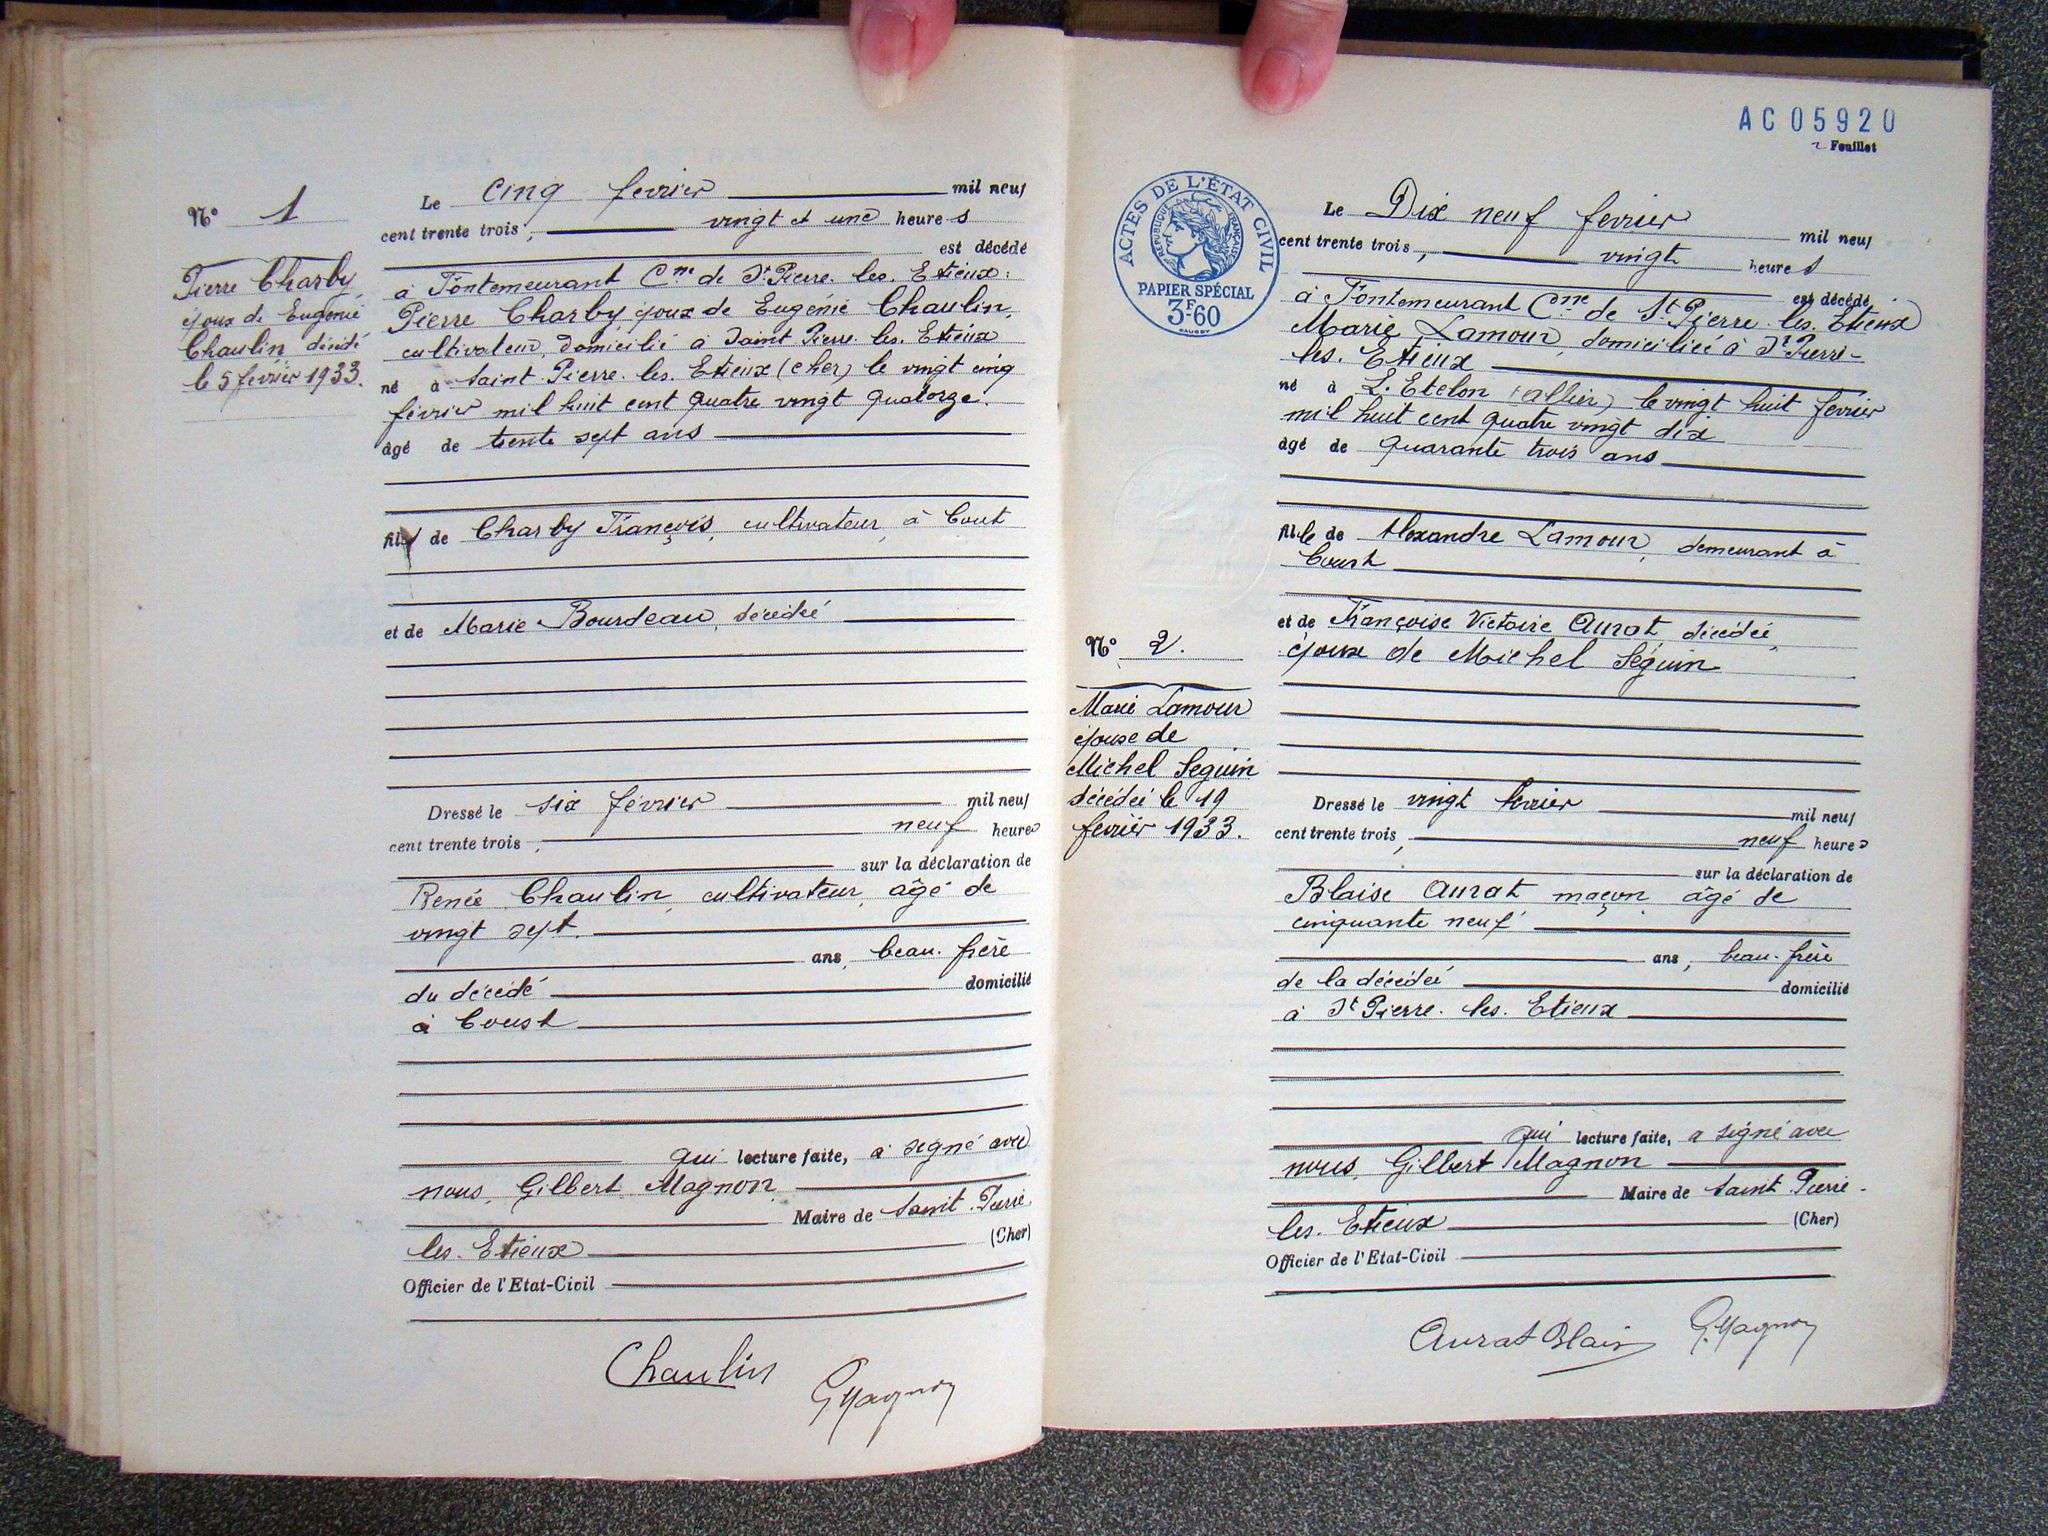 Nº 1
Pierre Charby
époux de Eugénie
Chaulin décédé
le 5 février 1933.
Le cinq fevrier mil neuf
cent trente trois, vingt et une heures
est décédé
à Fontemeurant Cne de St Pierre. les. Etieux:
Pierre Charby époux de Eugénie Chaulin,
cultivateur, domicilié à Saint Pierre. les. Etieux
né à Saint. Pierre. les. Etieux (Cher) le vingt cinq
février mil huit cent quatre vingt quatorze.
âgé de trente sept ans
fils de Charby François, cultivateur, à Cout
et de Marie Bourdeau, décédée
Dressé le six février mil neuf
cent trente trois, neuf heures
sur la déclaration de
Renée Chaulin, cultivateur, âgé de
vingt sept.
ans, beau. frère
du décédé domicilié
à Coust
qui lecture faite, a signé avec
nous, Gilbert Magnon
Maire de Saint. Pierre.
les. Etieux (Cher)
Officier de l'Etat-Civil
Chaulin
G Magnon
AC05920
2 Feuillet
ACTES DE L'ÉTAT CIVIL
RÉPUBLIQUE FRANÇAISE
PAPIER SPÉCIAL
3F.60
Nº 2.
Marie Lamour
épouse de
Michel Seguin
décédée le 19
fevrier 1933.
Le Dix neuf fevrier mil neuf
cent trente trois, vingt heures
est décédé
à Fontemeurant Cne de St Pierre. les. Etieux
Marie Lamour, domiciliée à St Pierre-
les. Etieux
né à L'Etelon (Allier) le vingt huit fevrier
mil huit cent quatre vingt dix
âgé de quarante trois ans
fille de Alexandre Lamour, demeurant à
Coust
et de Françoise Victoire Aurat décédée,
époux de Michel Séguin
Dressé le vingt fevrier mil neuf
cent trente trois, neuf heures
sur la déclaration de
Blaise Aurat maçon, âgé de
cinquante neuf
ans, beau. frère
de la décédée domicilié
à St Pierre. les. Etieux
qui lecture faite, a signé avec
nous, Gilbert Magnon
Maire de Saint. Pierre.
les. Etieux (Cher)
Officier de l'Etat-Civil
Aurat Blais
G. Magnon